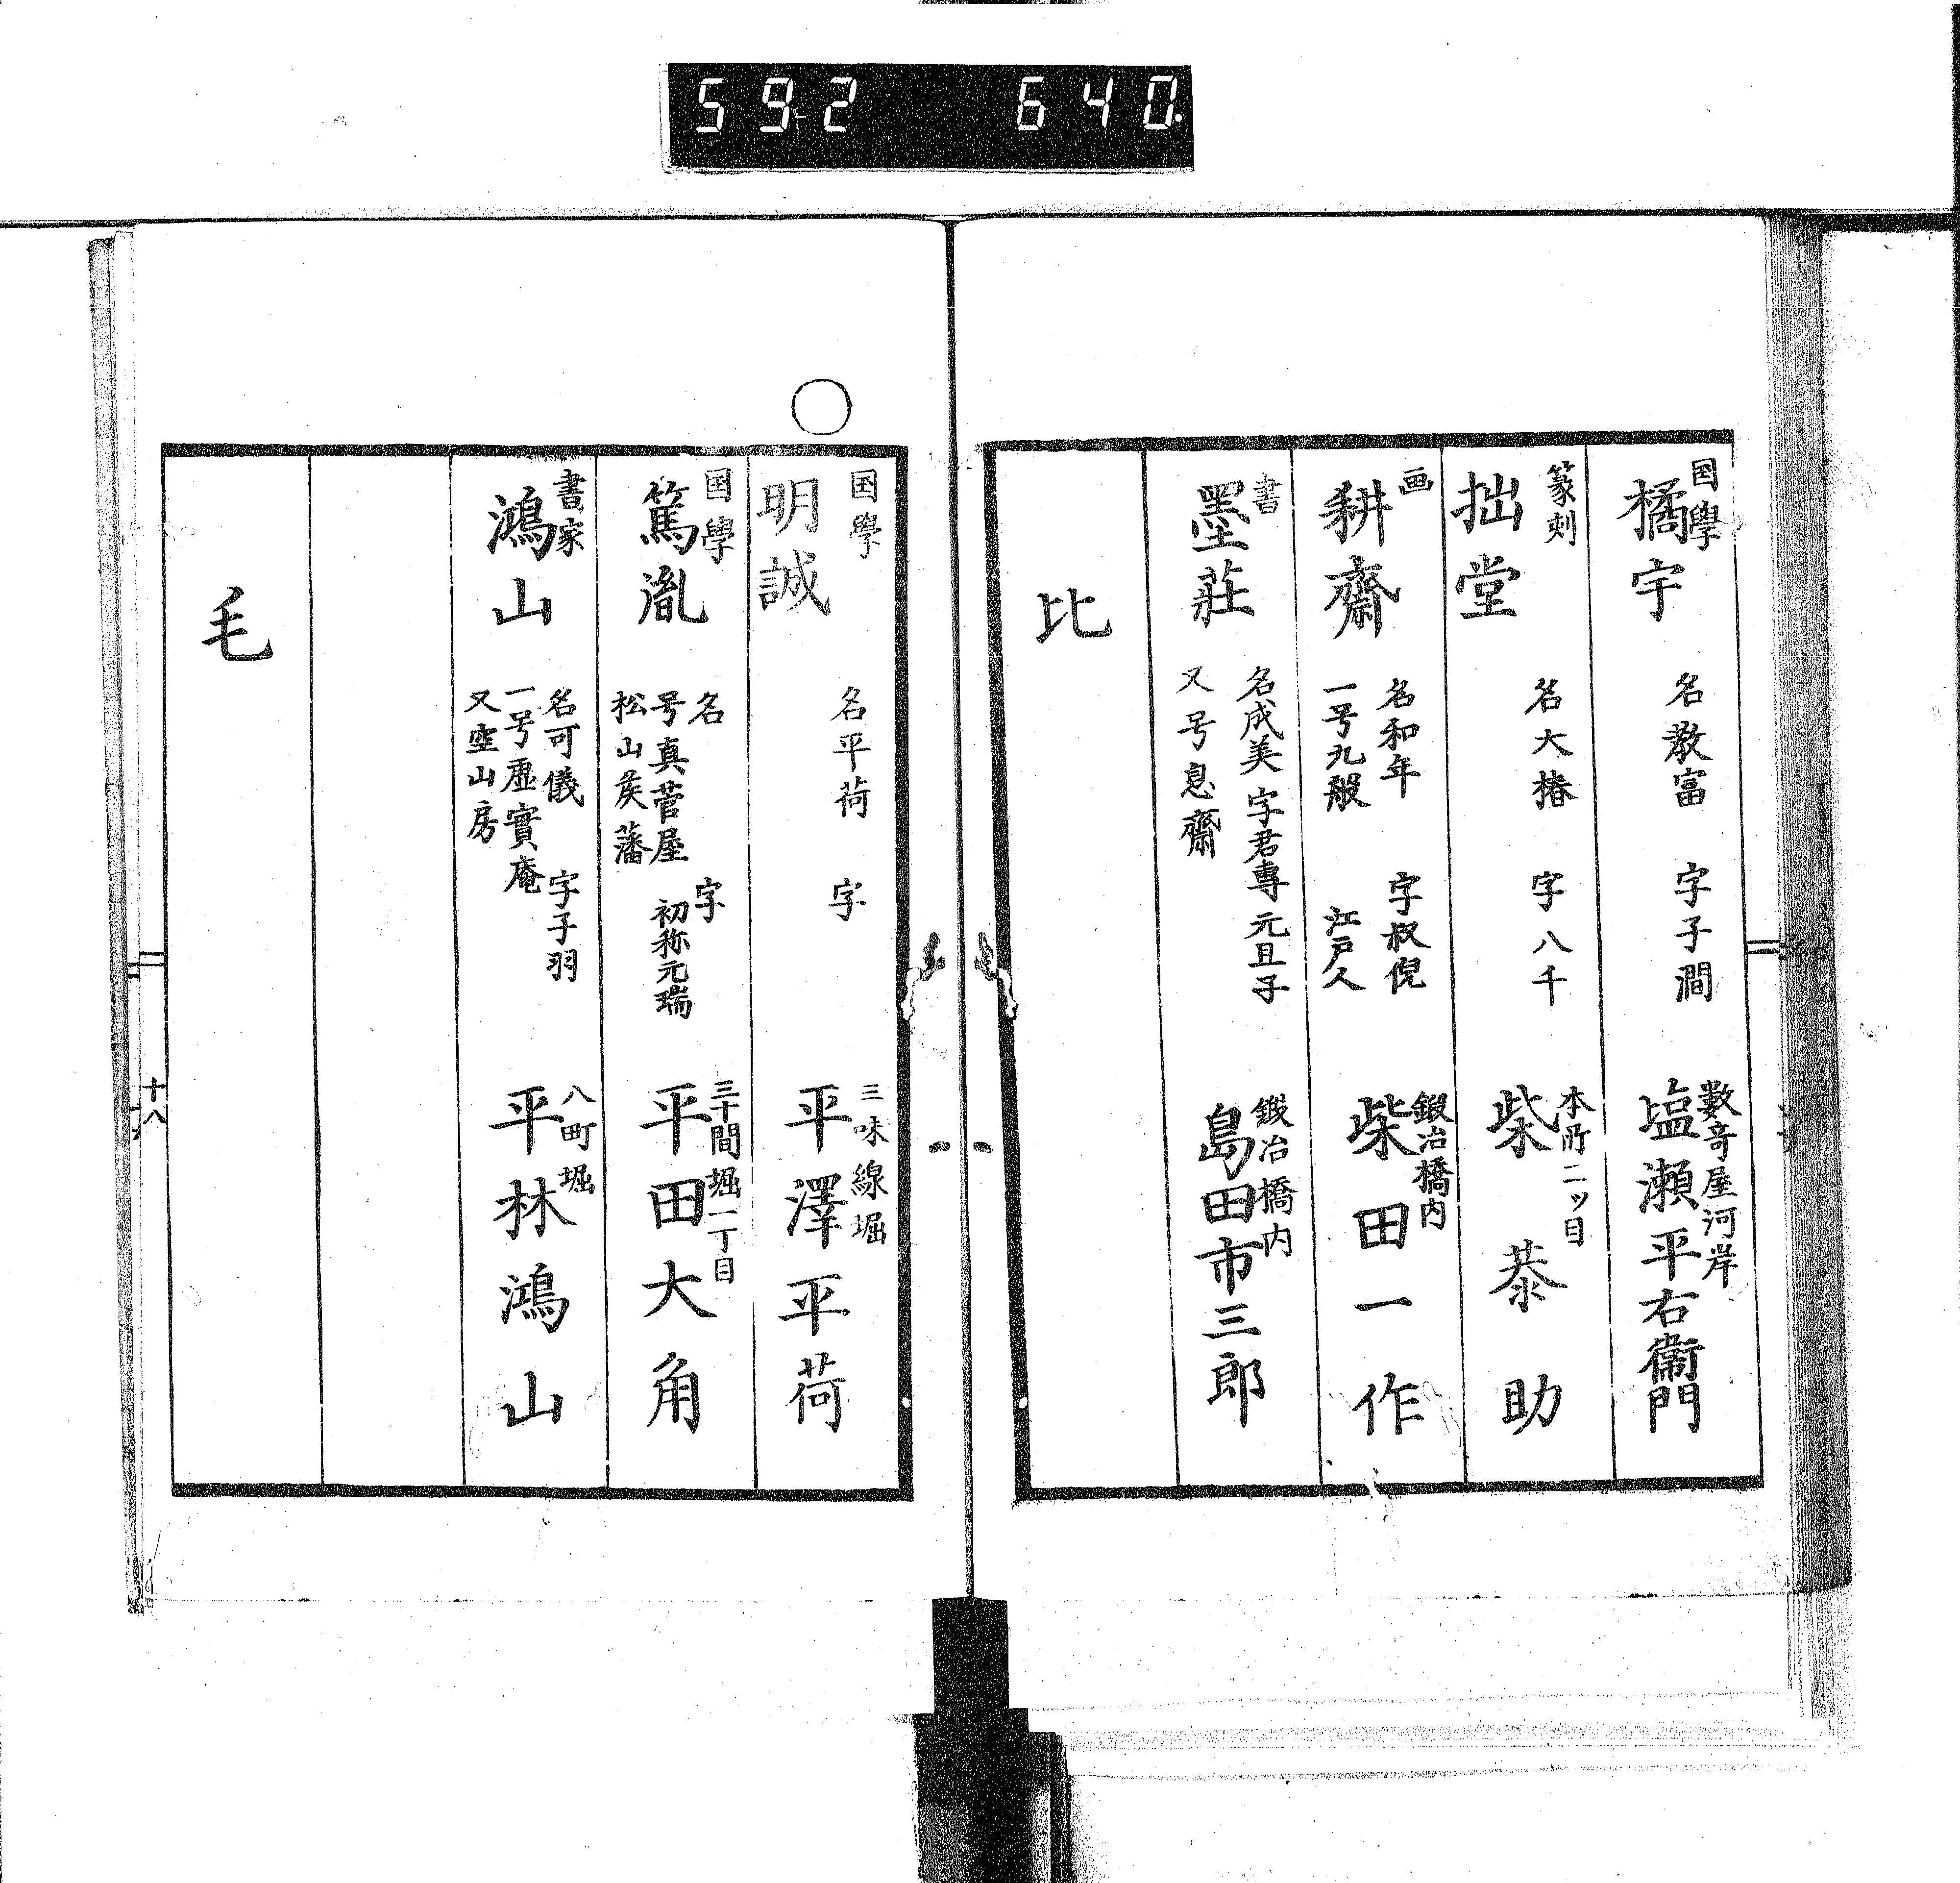 592 640.
国學
橘宇
名敎富 字子澗
數竒屋河岸
塩瀬平右衞門
篆刻
拙堂
名大椿 字八千
本所二ッ目
柴恭助
画
耕齋
名和年 字叔倪
一号九般 江戸人
鍛冶橋内
柴田一作
書
墨荘
名成美 字君專 元旦子
又号息齋
鍛冶橋内
島田市三郎
比
国學
明誠
名平荷 字
三味線堀
平澤平荷
国學
篤胤
名 字
号真菅屋 初称元瑞
松山矦藩
三十間堀一丁目
平田大角
書家
鴻山
名可儀 字子羽
一号虚實庵
又空山房
八町堀
平林鴻山
毛
十八